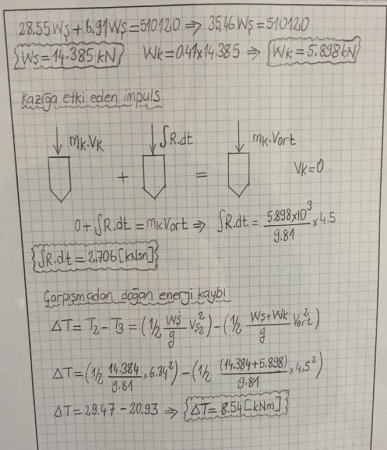 28.55Wş + 6.91Wş = 510120 ⇒ 35,46 Wş = 510120
Wş = 14.385 kN Wk = 0.41x14.385 ⇒ Wk = 5.898 kN
Kazığa etki eden impuls
mk.Vk ∫R.dt mk.Vort
+ = Vk=0
0+∫R.dt = mkVort ⇒ ∫R.dt = 5.898x10³/9.81 x4.5
∫R.dt = 2.706 [kNsn]
Çarpışmadan doğan enerji kaybı
ΔT = T2 - T3 = (1/2 Wş/g Vş2²) - (1/2 Wş+Wk/g Vort²)
ΔT = (1/2 14.384/9.81 x6.34²) - (1/2 (14.384+5.898)/9.81 x4.5²)
ΔT = 29.47 - 20.93 ⇒ ΔT = 8.54 [kNm]